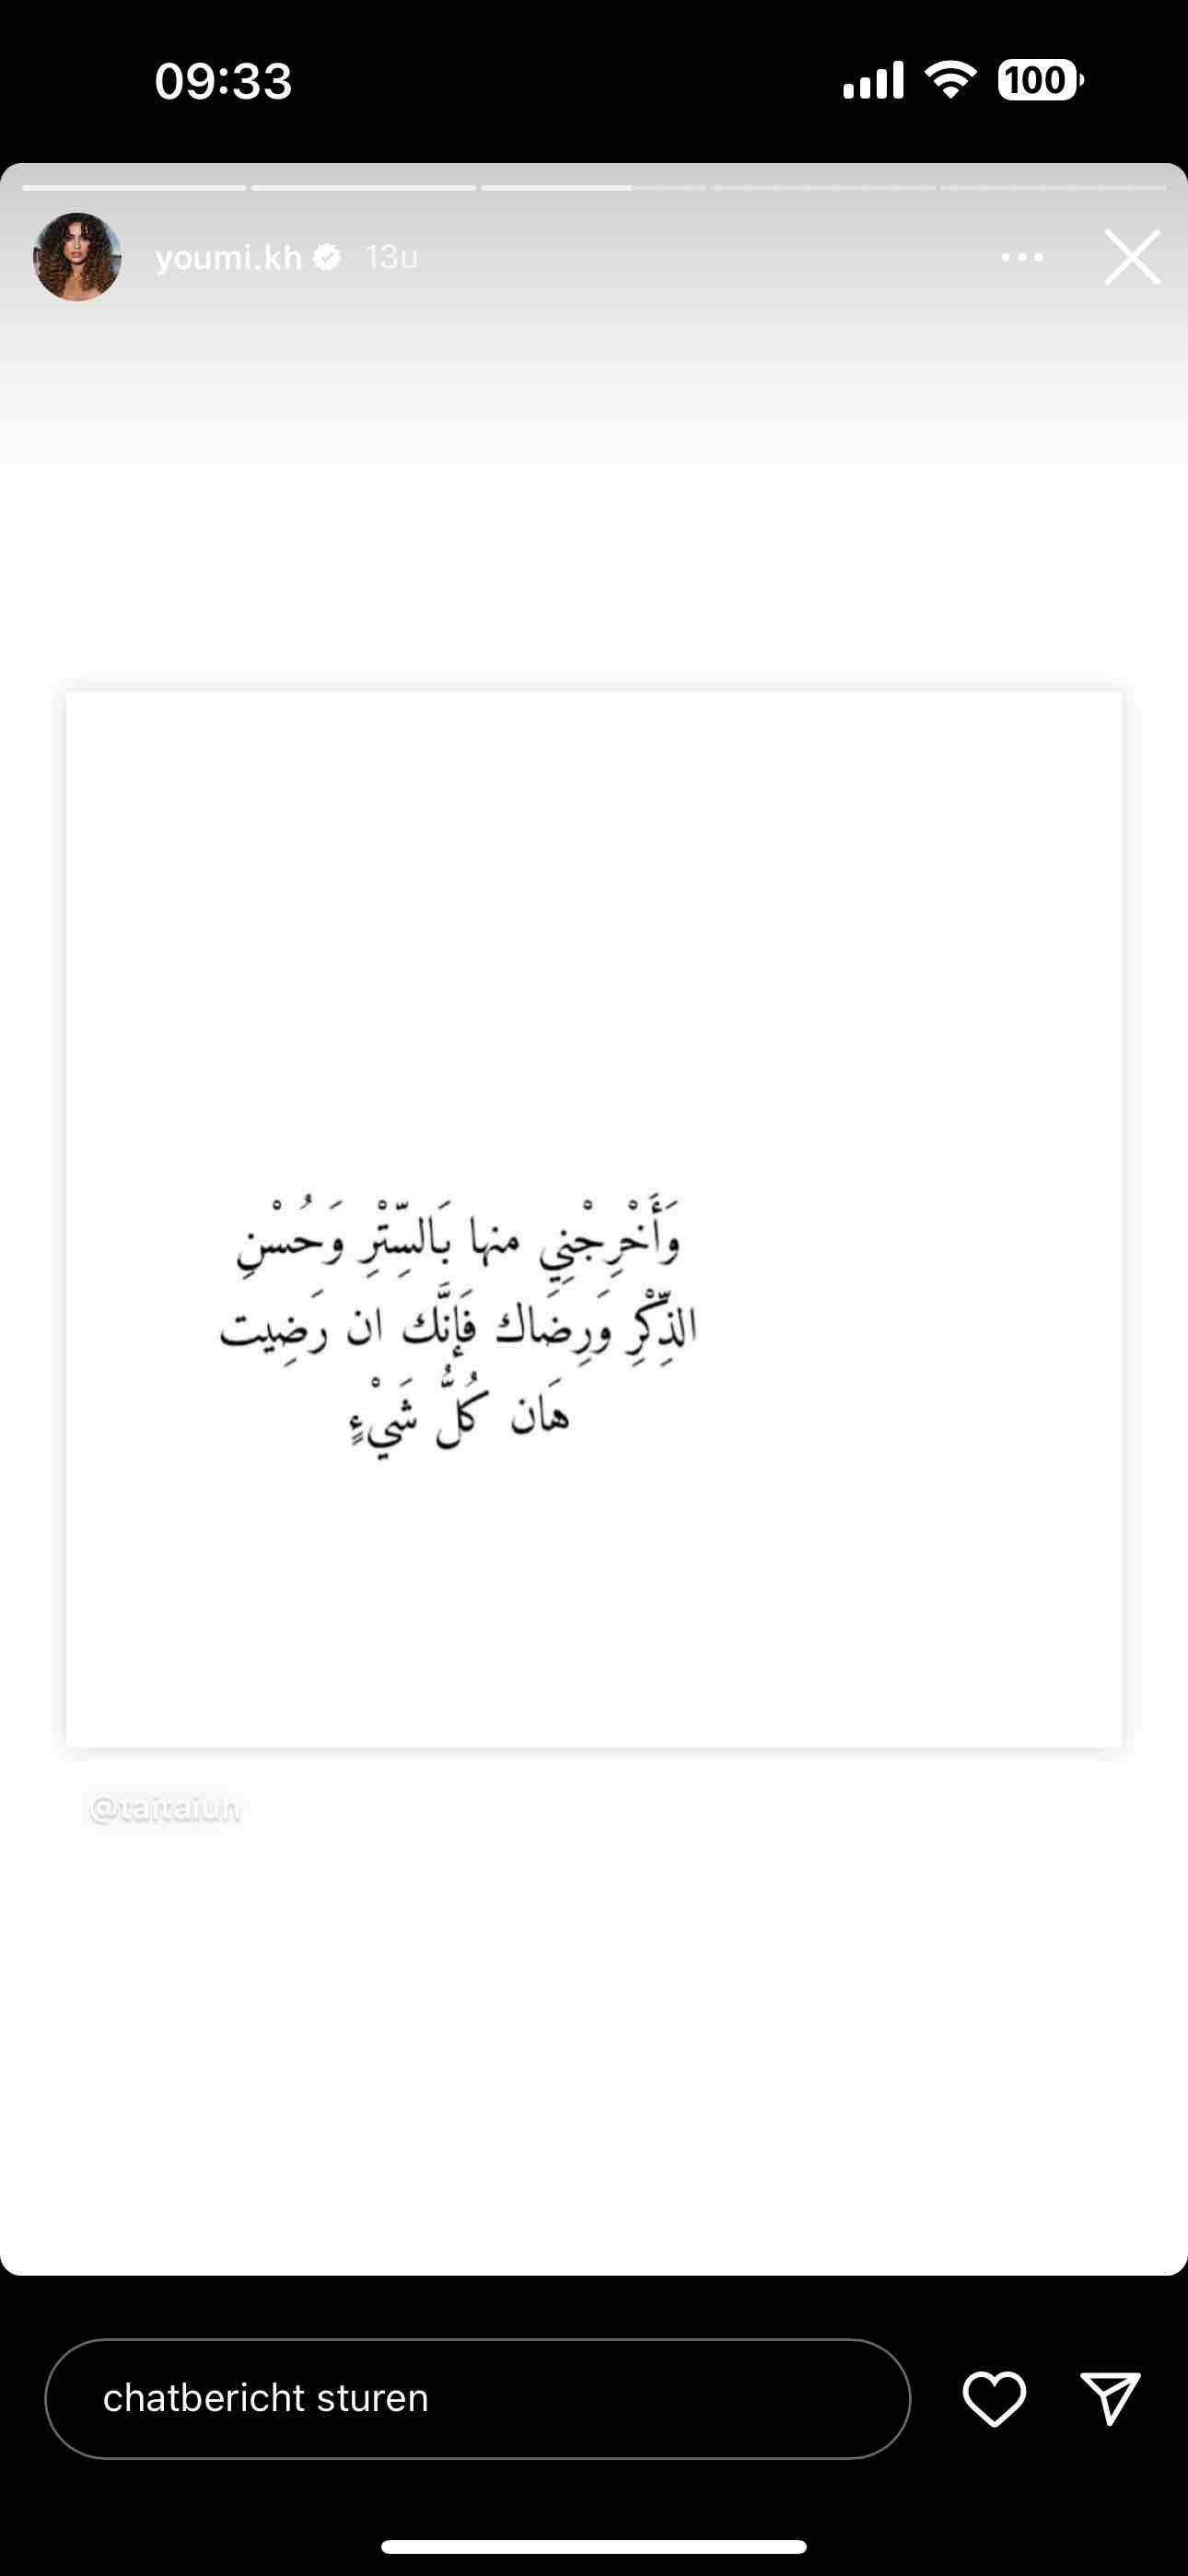 09:33
100
youmi.kh 13u
وَأَخْرِجْنِي منها بَالسِّتْرِ وَحُسْنِ
الذِّكْرِ وَرِضَاك فَإِنَّك ان رَضِيت
هَان كُلُّ شَيْءٍ
@taitaiuh
chatbericht sturen